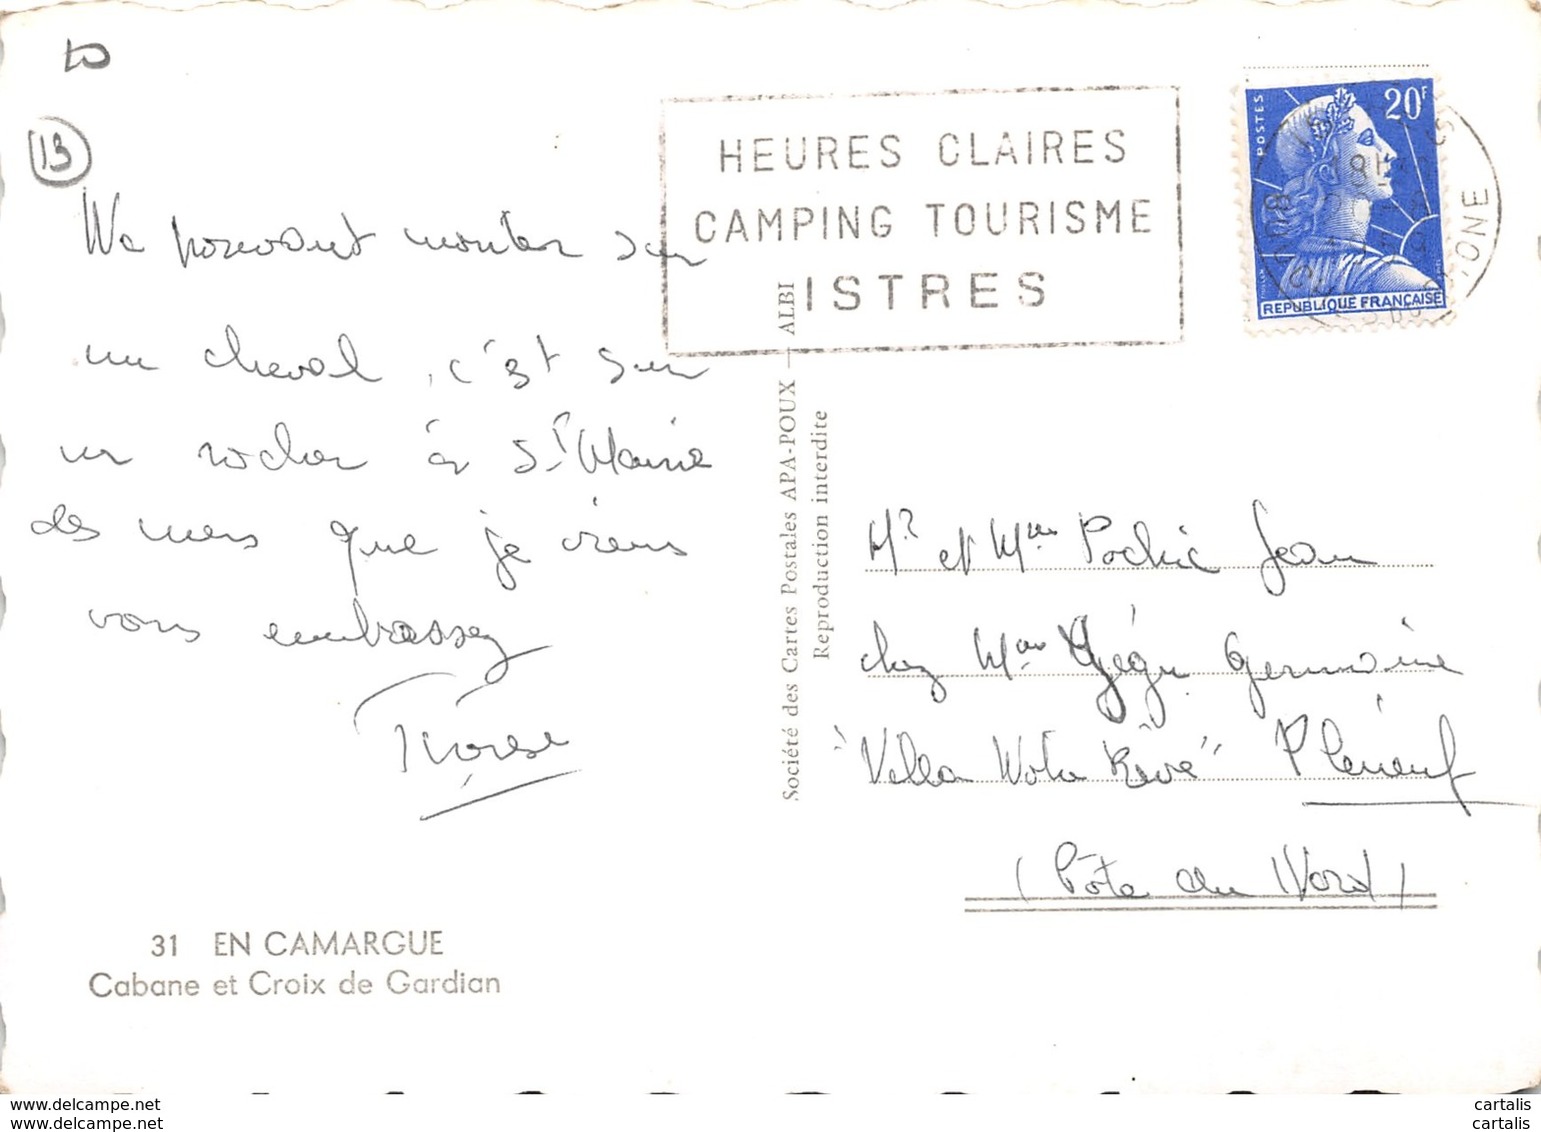 13
HEURES CLAIRES
CAMPING TOURISME
ISTRES
POSTES
20F
REPUBLIQUE FRANÇAISE
Ne pouvant monter sur
un cheval, c'est sur
un rocher à St Marie
des mers que je viens
vous embrassez
Société des Cartes Postales APA-POUX — ALBI
Reproduction interdite
Mr et Mme Pochic Jean
chez Mme Jégu Germaine
"Villa Wota Rêve" Pléneuf
(Côte du Nord)
31 EN CAMARGUE
Cabane et Croix de Gardian
www.delcampe.net
www.delcampe.net
cartalis
cartalis